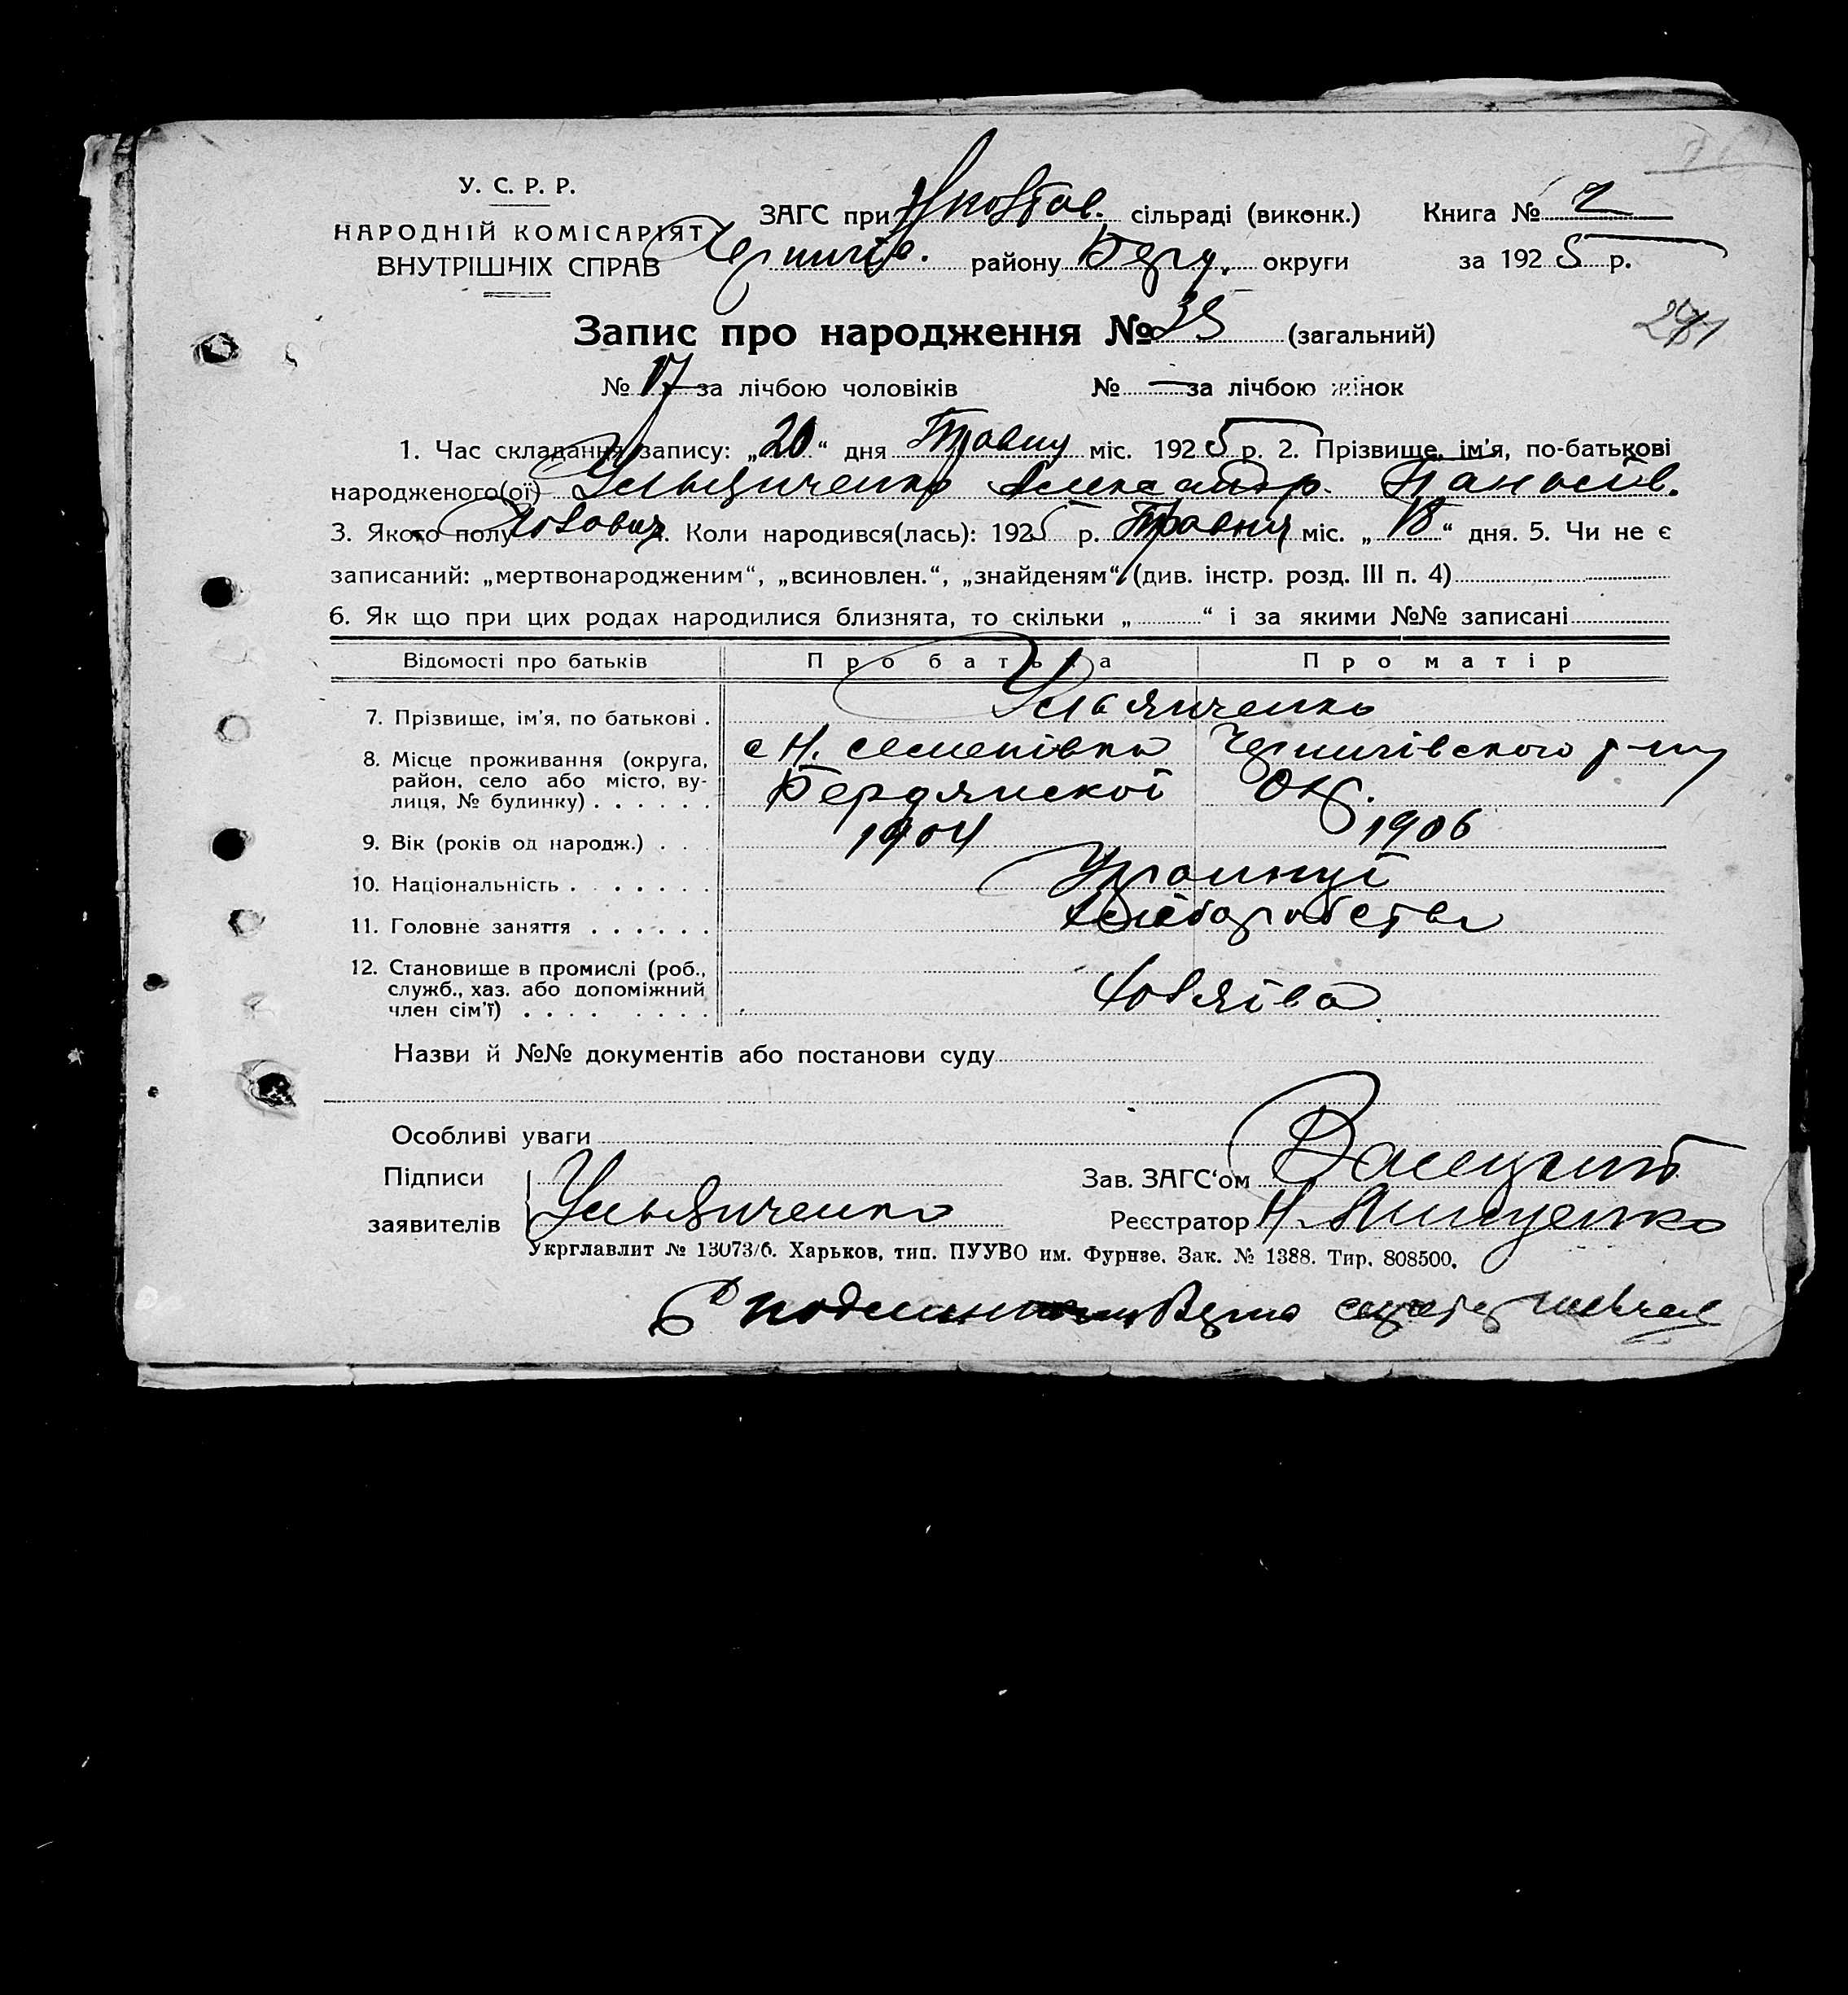 У. С. Р. Р.
НАРОДНІЙ КОМІСАРІЯТ
ВНУТРІШНІХ СПРАВ
ЗАГС при сільраді (виконк.) Книга № 2
Чернигів. району Берд. округи за 1925 р.
Запис про народження № 35 (загальний)
281
№ 17 за лічбою чоловіків № — за лічбою жінок
1. Час складання запису: „20“ дня Травня міс. 1925 р. 2. Прізвище, ім'я, по-батькові
народженого(ої) Ульяниченко Александр. Панасів.
3. Якого полу Чоловіч. Коли народився(лась): 1925 р. Травня міс. „18“ дня. 5. Чи не є
записаний: „мертвонародженим“, „всиновлен.“, „знайденям“ (див. інстр. розд. III п. 4)
6. Як що при цих родах народилися близнята, то скільки „ “ і за якими №№ записані
Відомості про батьків Про батька Про матір
7. Прізвище, ім'я, по батькові . Ульяниченко
8. Місце проживання (округа, район, село або місто, вулиця, № будинку) . . . . . . с Н. Семенівка Чернигівського р-ну
Бердянської Ок.
9. Вік (років од народж.) . . . 1904 1906
10. Національність . . . . . . . Українці
11. Головне заняття . . . . . . Хліборобство
12. Становище в промислі (роб., служб., хаз. або допоміжний член сім'ї) . . . . . . . .
Назви й №№ документів або постанови суду
Особливі уваги
Підписи
заявителів Ульяниченко
Зав. ЗАГС'ом
Реєстратор Н.
Укрглавлит № 13073/б. Харьков, тип. ПУУВО им. Фурнзе. Зак. № 1388. Тир. 808500.